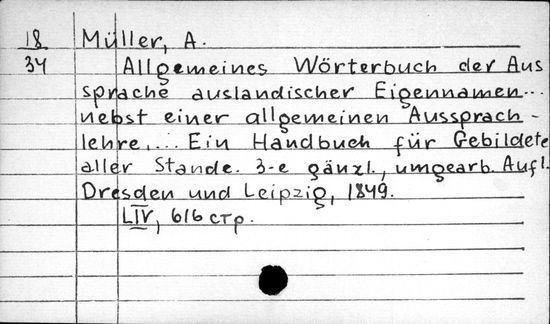 18 Müller, A.
34 Allgemeines Wörterbuch der Aus
sprache auslandischer Eigennamen...
nebst einer allgemeinen Aussprach-
lehre,... Ein Handbuch für Gebildete
aller Stande. 3-e gänzl., umgearb. Aufl.
Dresden und Leipzig, 1849.
LIV, 616 стр.